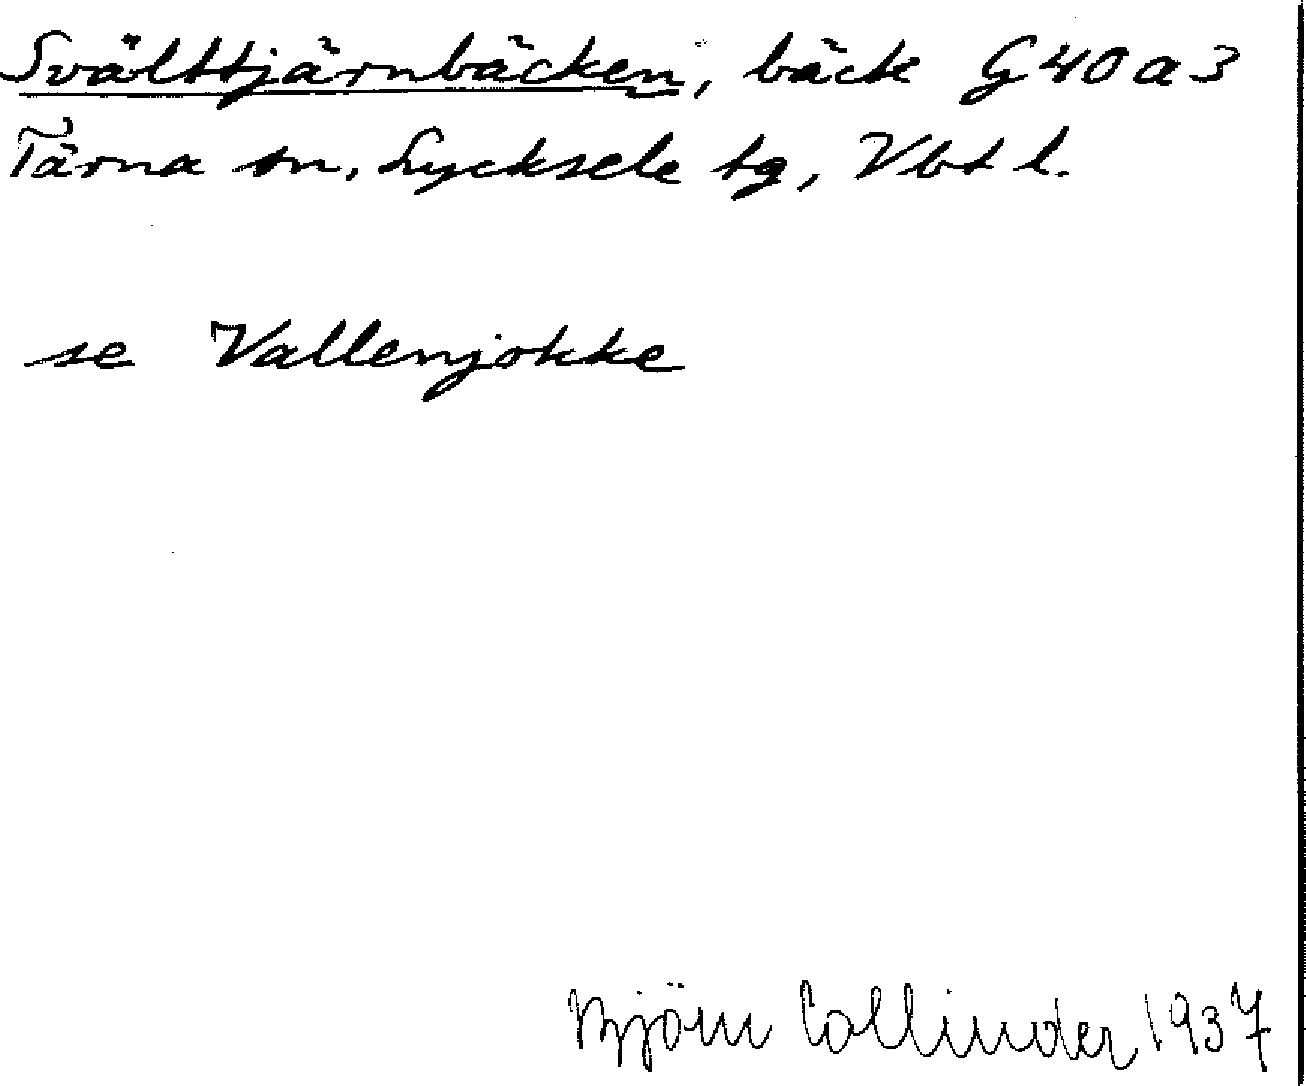 Svälttjärnbäcken, bäck G40a3
Tärna sn, Lycksele tg, Vbt l.
se Vallenjokke
Björn Collinder 1937